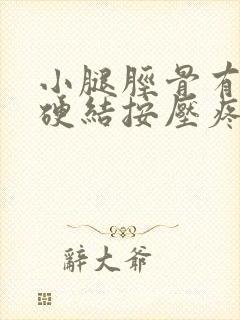 小腿脛骨有
硬結按壓疼
辭大爺